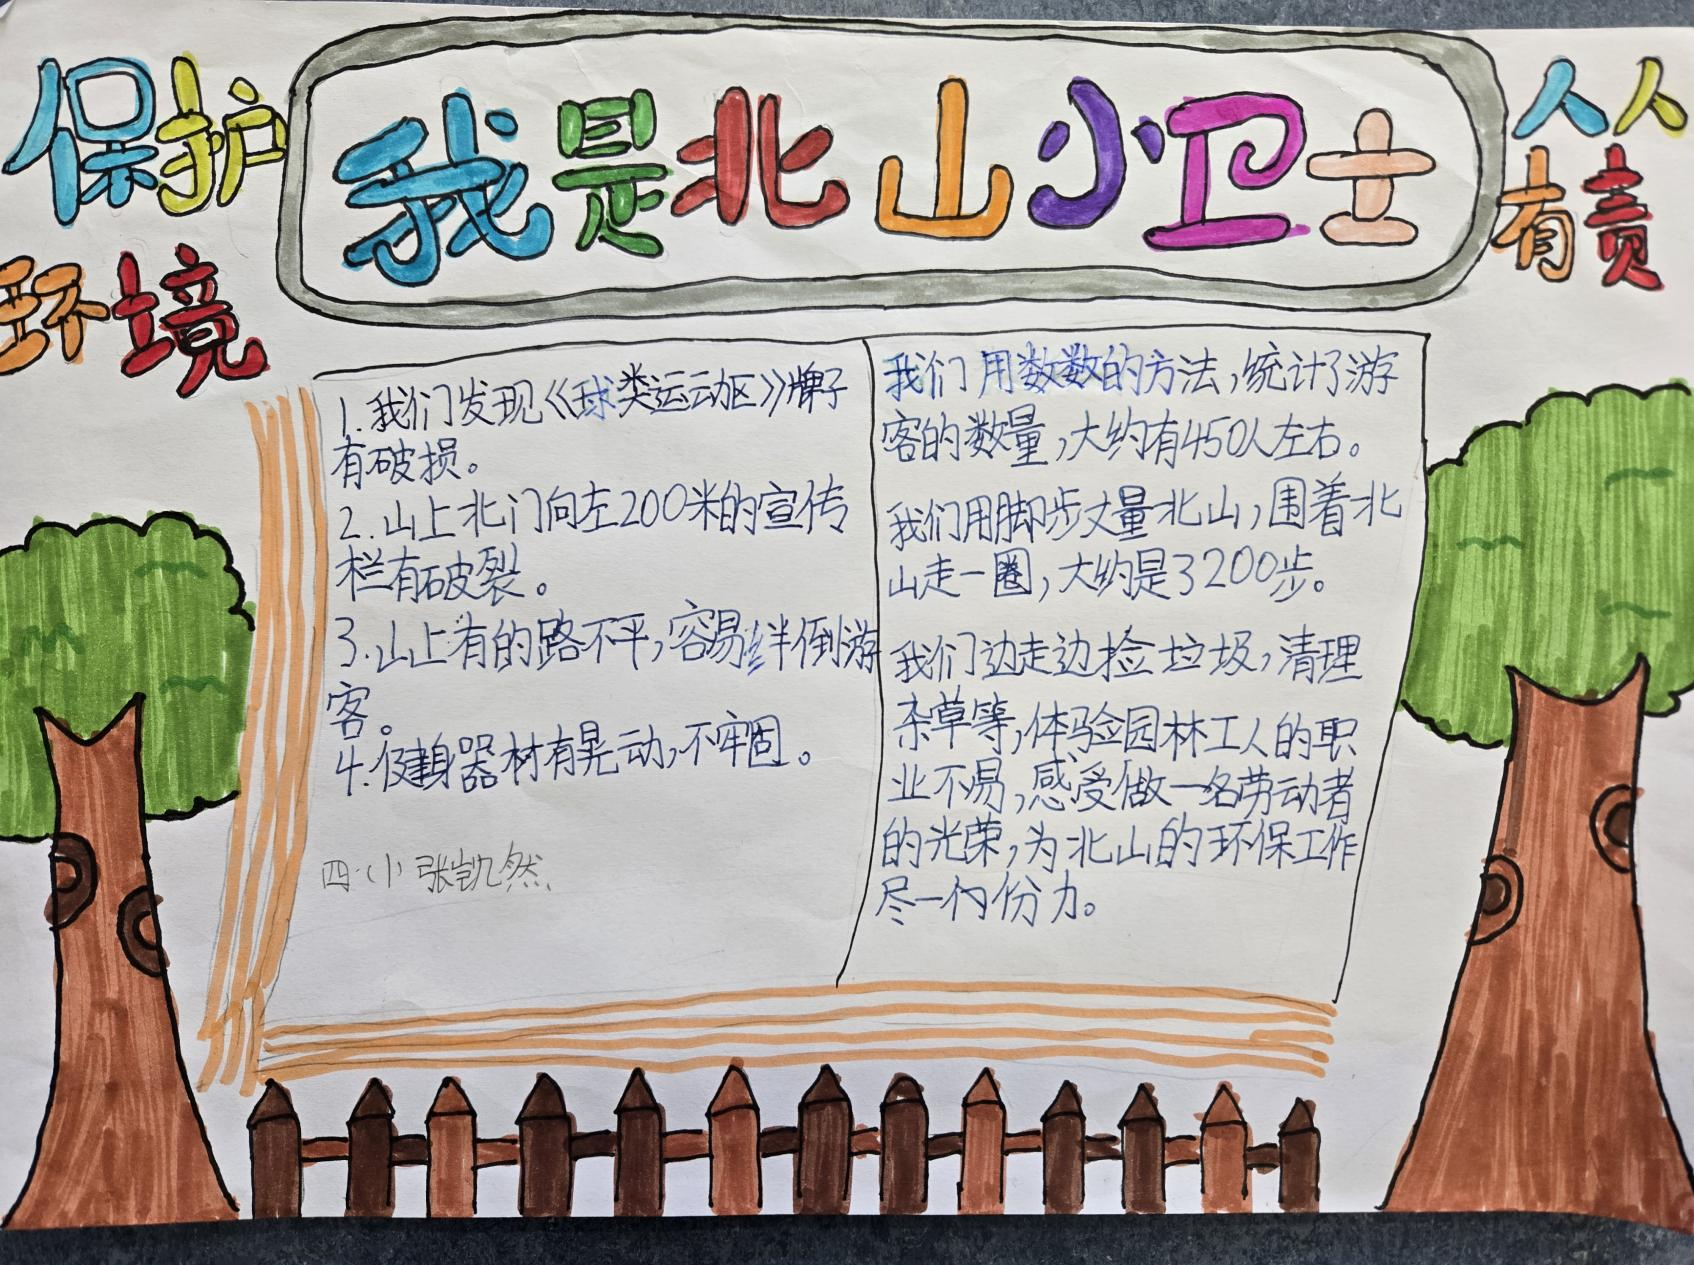 保护
环境
我是北山小卫士
人人
有责
1.我们发现《球类运动区》牌子
有破损。
2.山上北门向左200米的宣传
栏有破裂。
3.山上有的路不平,容易绊倒游
客。
4.健身器材有晃动,不牢固。
四·小 张凯然
我们用数数的方法,统计了游
客的数量,大约有450人左右。
我们用脚步丈量北山,围着北
山走一圈,大约是3200步。
我们边走边捡垃圾,清理
杂草等,体验园林工人的职
业不易,感受做一名劳动者
的光荣,为北山的环保工作
尽一份力。